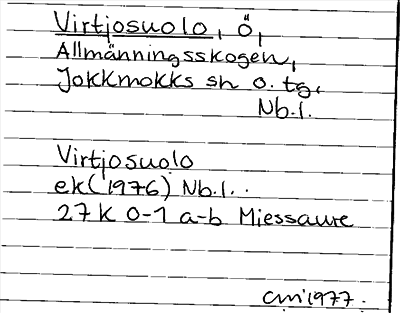 Virtjosuolo, Ö,
Allmänningsskogen,
Jokkmokks sn o. tg,
Nb.l.
Virtjosuolo
ek(1976) Nb.l.
27K 0-1 a-b Miessaure
1977.